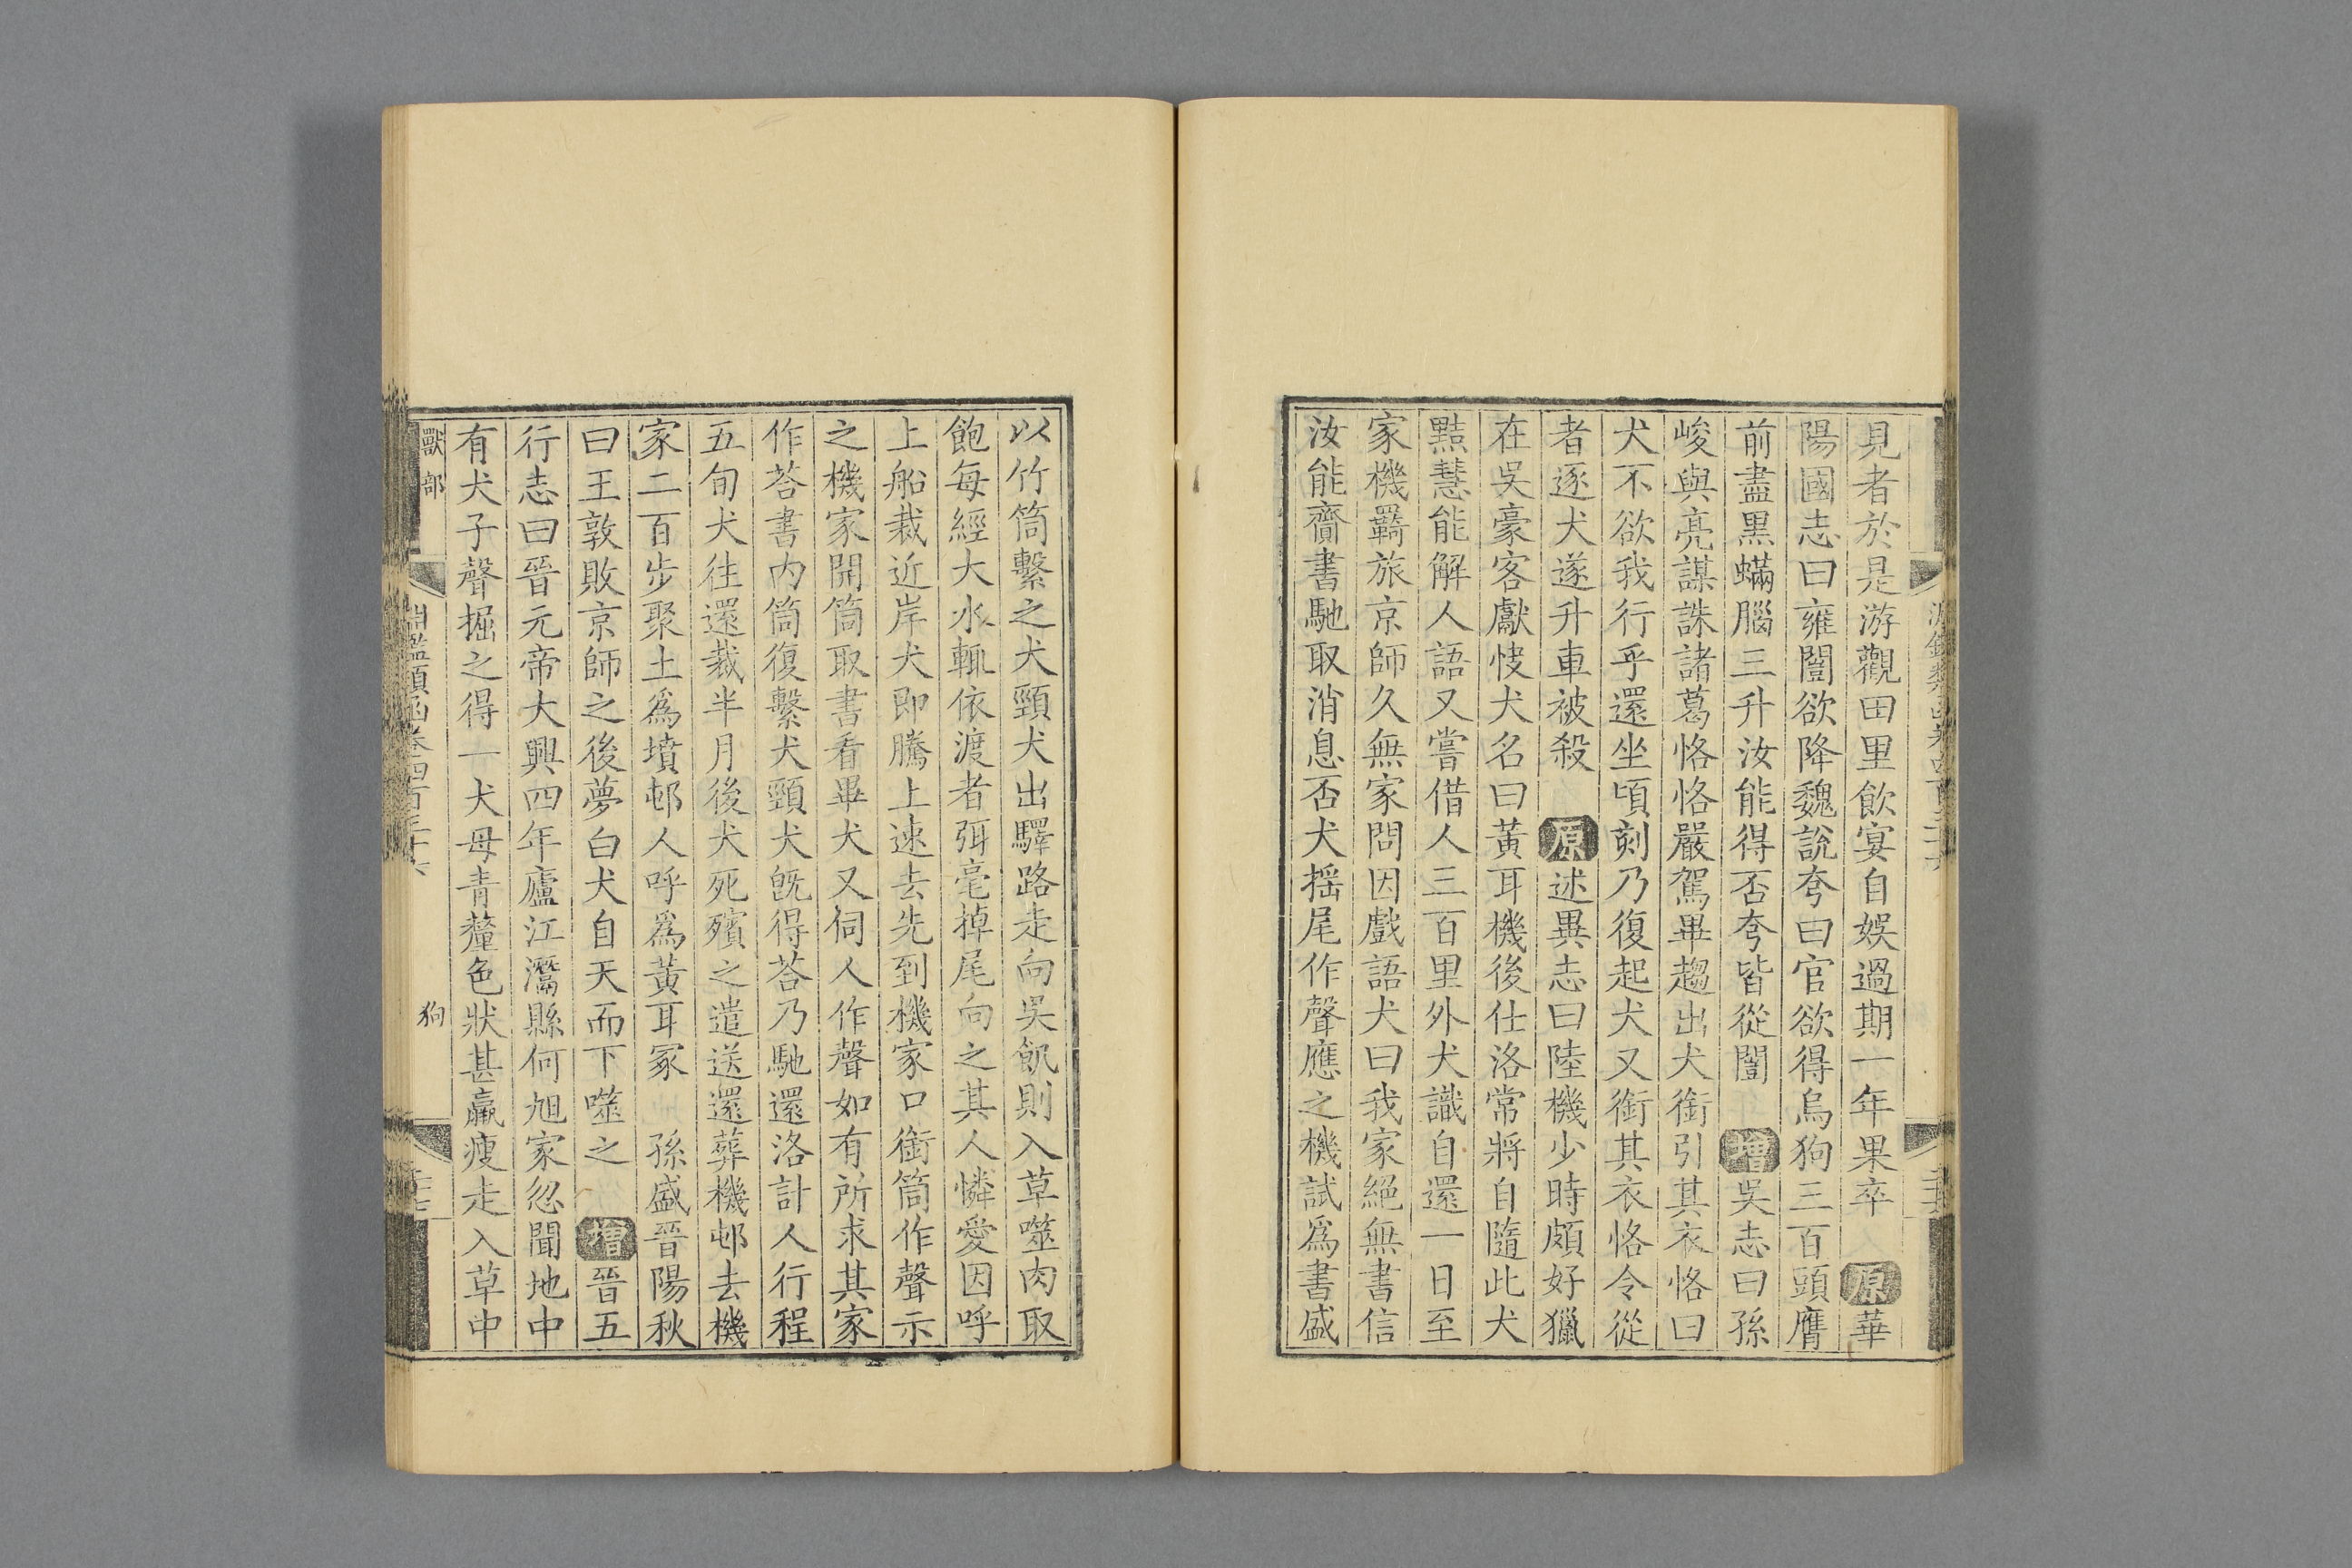 見者於是游觀田里飲宴自娛過期一年果卒 原華
陽國志曰雍闓欲降魏說夸曰官欲得烏狗三百頭膺
前盡黑蟎腦三升汝能得否夸皆從闓 增吳志曰孫
峻與亮謀誅諸葛恪恪嚴駕畢趨出犬銜引其衣恪曰
犬不欲我行乎還坐頃刻乃復起犬又銜其衣恪令從
者逐犬遂升車被殺 原述異志曰陸機少時頗好獵
在吳豪客獻快犬名曰黃耳機後仕洛常將自隨此犬
黠慧能解人語又嘗借人三百里外犬識自還一日至
家機羇旅京師久無家問因戲語犬曰我家絕無書信
汝能齎書馳取消息否犬搖尾作聲應之機試爲書盛
以竹筒繫之犬頸犬出驛路走向吳飢則入草噬肉取
飽每經大水輒依渡者弭毫掉尾向之其人憐愛因呼
上船裁近岸犬即騰上速去先到機家口銜筒作聲示
之機家開筒取書看畢犬又伺人作聲如有所求其家
作荅書內筒復繫犬頸犬旣得荅乃馳還洛計人行程
五旬犬往還裁半月後犬死殯之遣送還葬機邨去機
家二百步聚土爲墳邨人呼爲黃耳冢 孫盛晉陽秋
曰王敦敗京師之後夢白犬自天而下噬之 增晉五
行志曰晉元帝大興四年廬江灊縣何旭家忽聞地中
有犬子聲掘之得一犬母青䵩色狀甚羸瘦走入草中
獸部 淵鑑類函卷四百三十六 狗